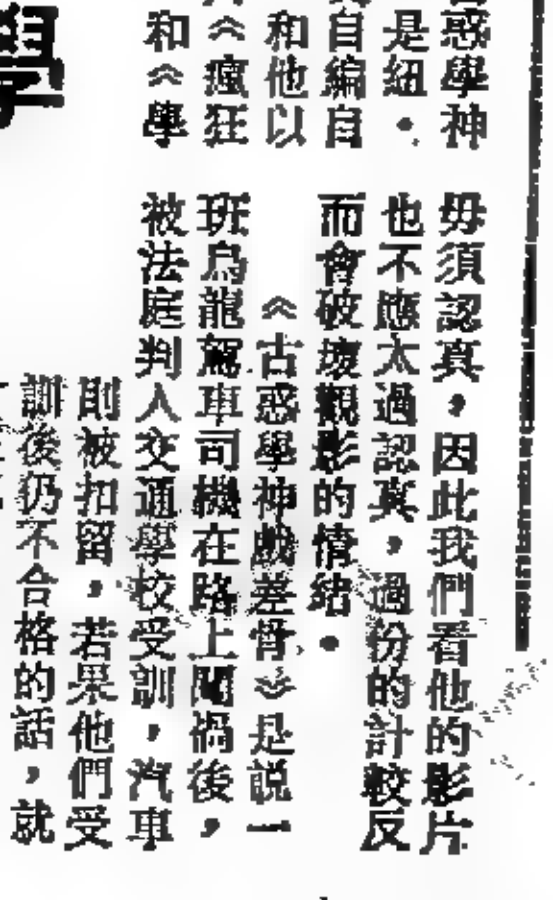 惑學神
是紐．
自編自
和他以
《瘋狂
和《學
毋須認真，因此我們看他的影片
也不應太過認真，過份的計較反
而會破壞觀影的情緒．
《古惑學神戲差骨》是說一
班烏龍駕車司機在路上闖禍後，
被法庭判入交通學校受訓，汽車
則被扣留，若果他們受
訓後仍不合格的話，就
學